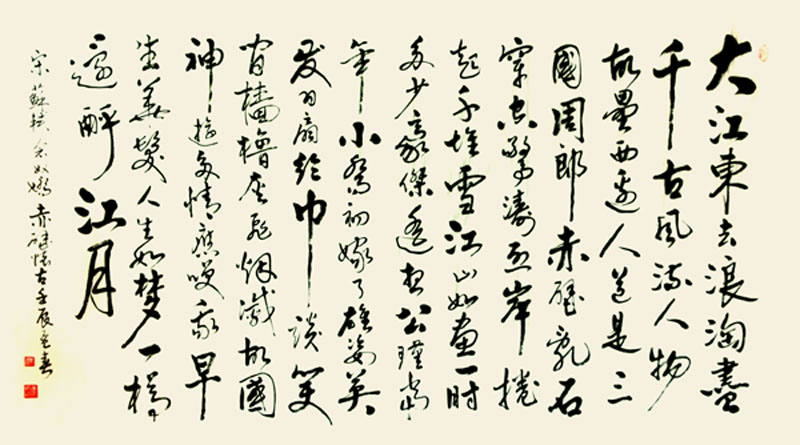 大江東去浪淘盡
千古風流人物
故壘西邊人道是三
國周郎赤壁亂石
穿空驚濤拍岸捲
起千堆雪江山如畫一時
多少豪傑遙想公瑾當
年小喬初嫁了雄姿英
發羽扇綸巾談笑
間檣櫓灰飛煙滅故國
神遊多情應笑我早
生華髮人生如夢一樽
還酹江月
宋蘇軾念奴嬌赤壁懷古壬辰春